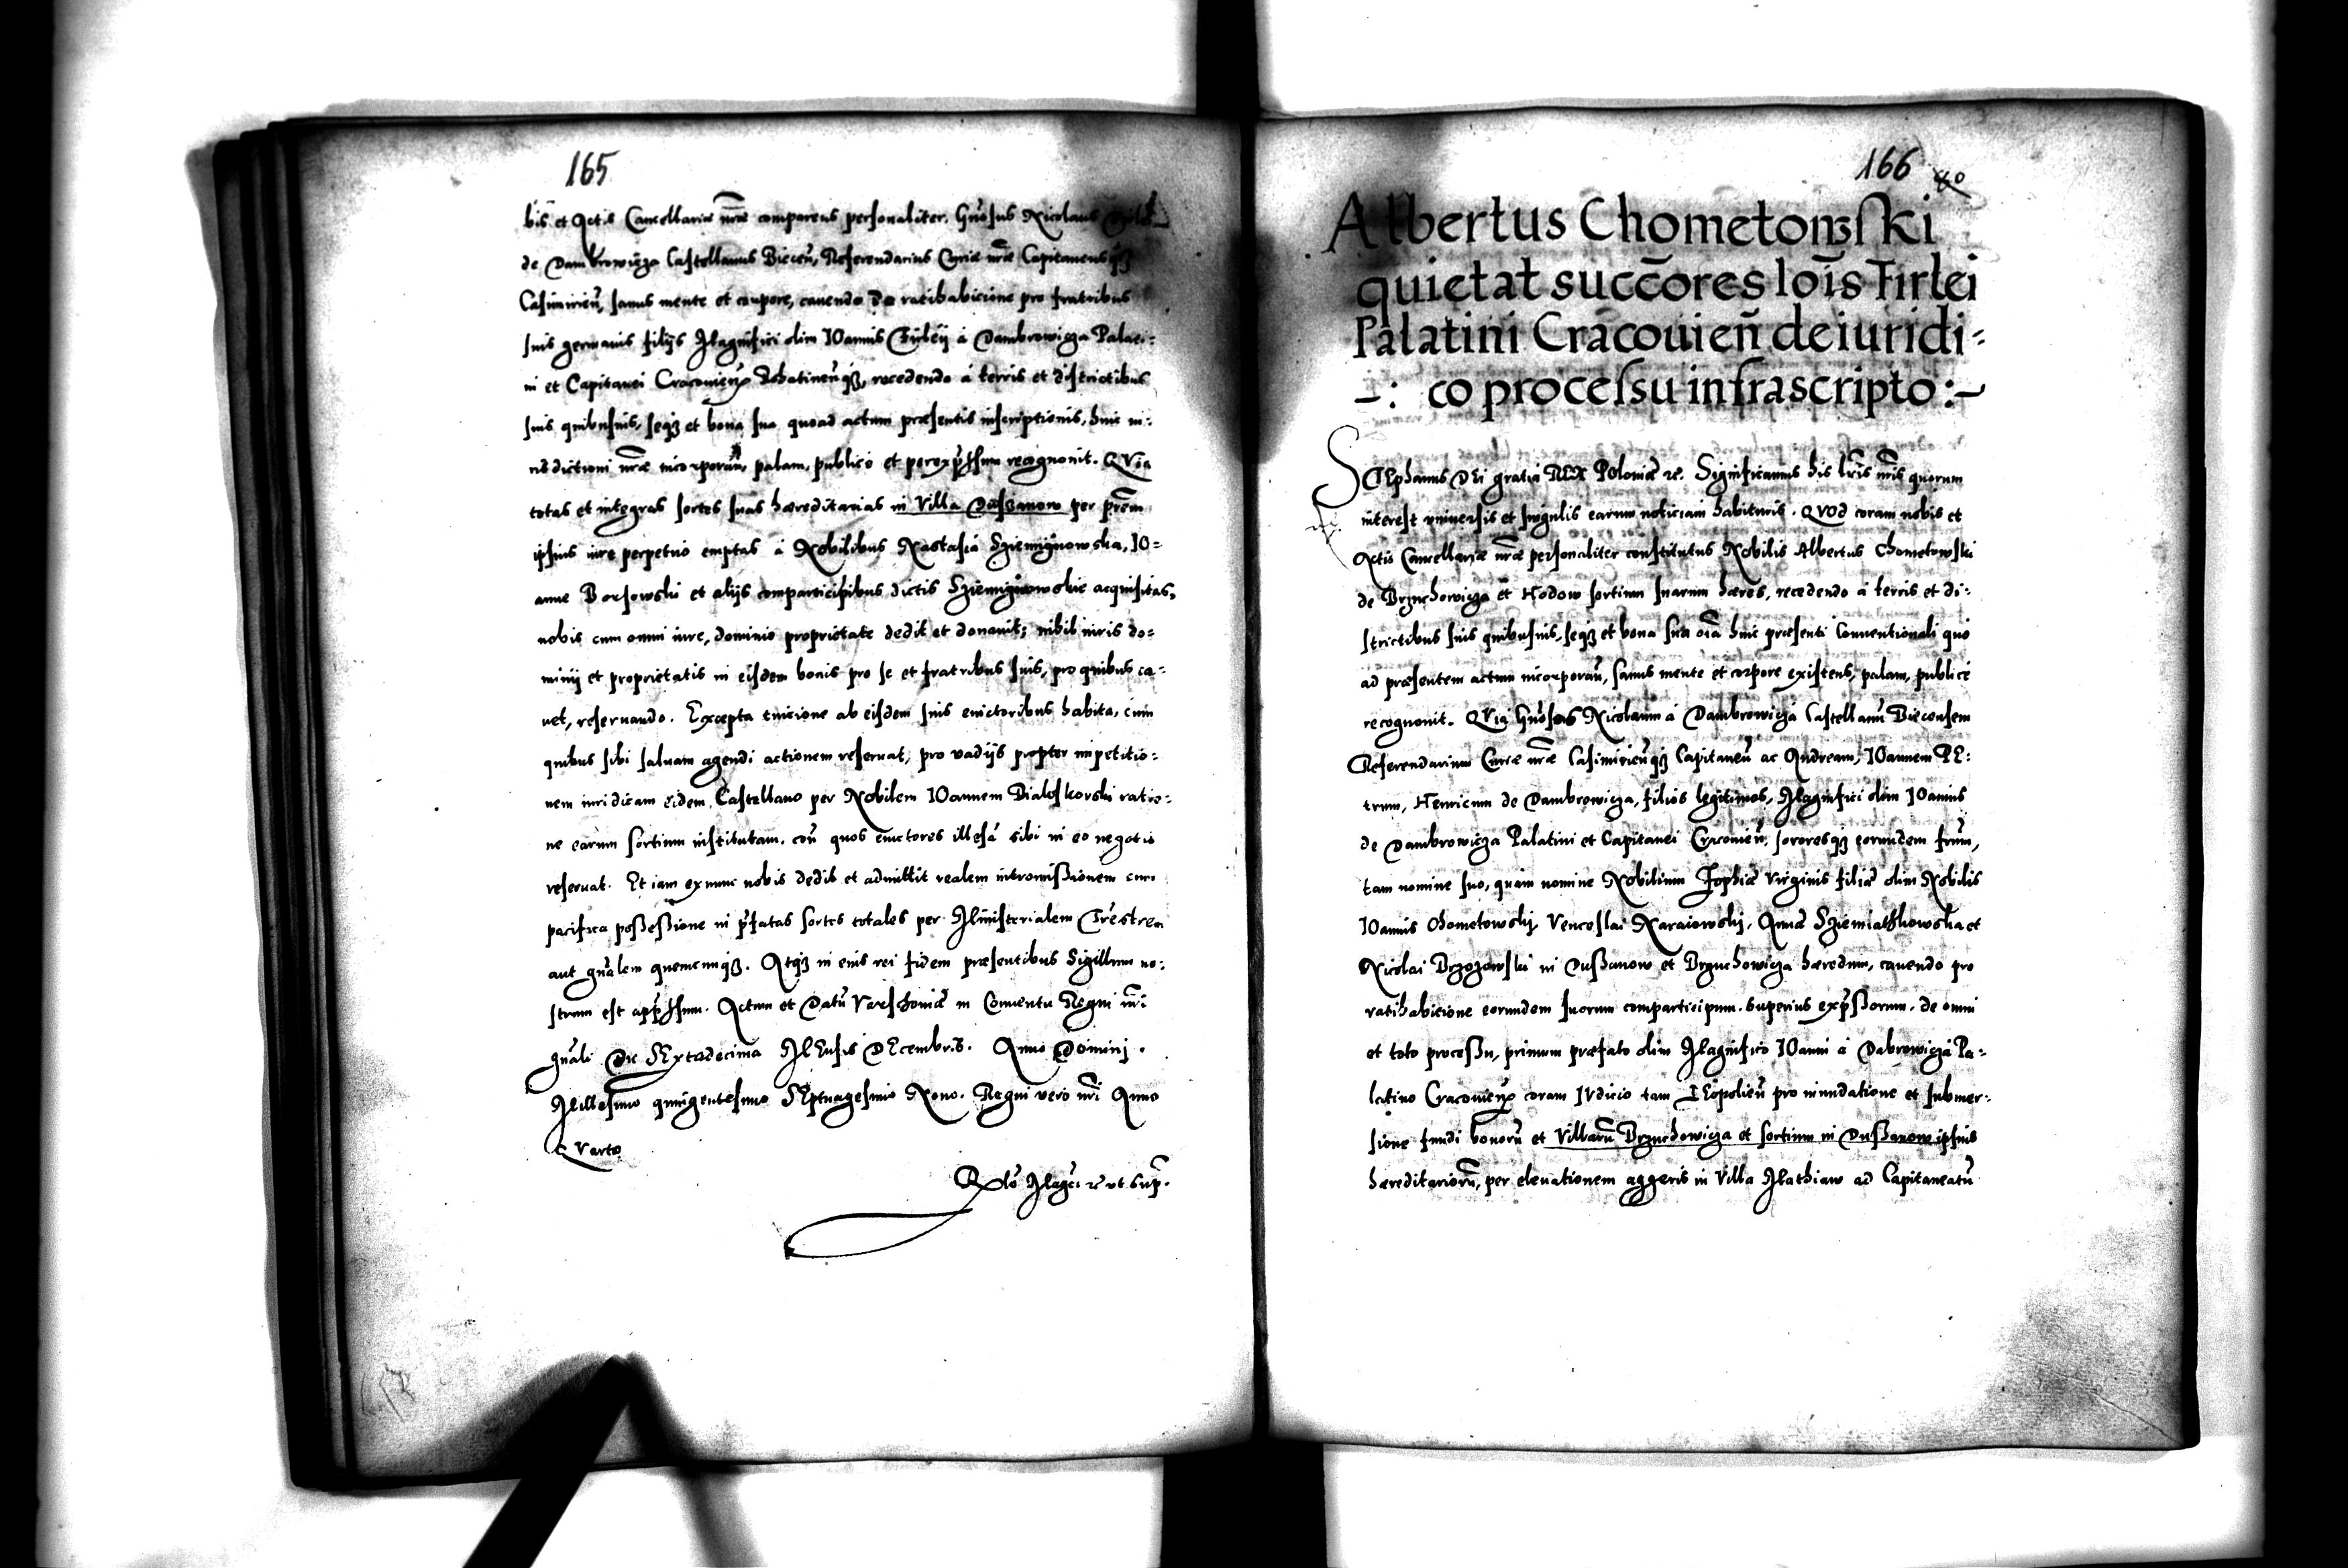 165
bis et Actis Cancellariæ nr̃æ comparens personaliter. Gn̄osus Nicolaus
de Dambrowicza Castellanus Biecen̄, Referendarius Curiæ nr̃æ Capitaneusqꝫ
Casimirien̄, sanus mente et corpore, cauendo de ratihabicione pro fratribus
suis germanis filijs Magnifici olim IOannis Firleij à Dambrowicza Palati-
ni et Capitanei Cracovien̄ Rohatinen̄qꝫ, recedendo à terris et districtibus
suis quibusuis, seqꝫ et bona sua quoad actum præsentis inscriptionis, huic iu-
risdictioni nr̃æ incorporan̄, palam, publicè et per exp̄ssum recognouit. QVia
totas et integras sortes suas hæreditarias in Villa Dusßanow per pr̃em
ipsius iure perpetuo emptas à Nobilibus Nastasia Sziemignowska, IO-
anne Borsowski et alijs comparticipibus dictis Sziemignowskie acquisitas,
nobis cum omni iure, dominio proprietate dedit et donauit; nihil iuris do-
minij et proprietatis in eisdem bonis pro se et fratribus suis, pro quibus ca-
uet, reseruando. Excepta euicione ab eisdem suis euictoribus habita, cum
quibus sibi saluam agendi actionem reseruat, pro vadijs propter impetitio-
nem iuridicam eidem Castellano per Nobilem IOannem Bialoskorski ratio-
ne earum sortium institutam. con̄ quos euictores illesã sibi in eo negotio
reseruat. Et iam ex nunc nobis dedit et admittit realem intromißionem cum
pacifica poßeßione in p̄fatas sortes totales per Ministerialem Terestrem
aut gn̄alem quemcunqꝫ. Atqꝫ in eius rei fidem præsentibus Sigillum no-
strum est app̄ssum. Actum et Datū Varschouiæ in Conuentu Regni nr̃i
gn̄ali Die SExtadecima MEnsis DEcembris. Anno Dominj.
Millesimo quingentesimo SEptuagesimo Nono. Regni vero nr̃i Anno
QVarto
Rlō Magci ꝛc̄ vt sup̄.
166
Albertus Chometowski
quietat succc̄ores Iois̄ Firlei
Palatini Cracouien̄ de iuridi-
-: co processu infrascripto :-
STEphanus DEi gratia REX Poloniæ ꝛc. Significamus his lr̃is nr̃is quorum
interest vniuersis et singulis earum noticiam habituris. QVOd coram nobis et
Actis Cancellariæ nr̃æ personaliter constitutus Nobilis Albertus Chometowski
de Brzuchowicza et Hodow sortium suarum hæres, recedendo à terris et di-
strictibus suis quibusuis, seqꝫ et bona sua oĩa huic præsenti Conuentionali quò
ad præsentem actum incorporan̄, sanus mente et corpore existens, palam, publicè
recognouit. QVia Gn̄osos Nicolaum à Dambrowicza Castellanū Biecensem
Referendarium Curiæ nr̃æ Casimirien̄qꝫ Capitaneū ac Andream, IOannem PE-
trum, Henricum de Dambrowicza, filios legitimos, Magnifici olim IOannis
de Dambrowicza Palatini et Capitanei Cracovien̄, sororesqꝫ eorundem fr̃um,
tam nomine suo, quàm nomine Nobilium Zophiæ Virginis filiæ olim Nobilis
IOannis Chometowskj, Venceslai Naraiowskj, Annæ Sziemiathkowska et
Nicolai Brzozowski in Dußanow et Brzuchowicza hæredum, cauendo pro
ratihabicione eorundem suorum comparticipum. superius exp̄ßorum. de omni
et toto proceßu, primum præfato olim Magnifico IOanni à Dãbrowicza Pa-
latino Cracovien̄ coram IVdicio tam LEopolien̄ pro inundatione et submer-
sione fundi bonorū et Villarū Brzuchowicza et sortium in Dußanow ipsius
hæreditariorū, per eleuationem aggeris in Villa Mathiaw ad Capitaneatū